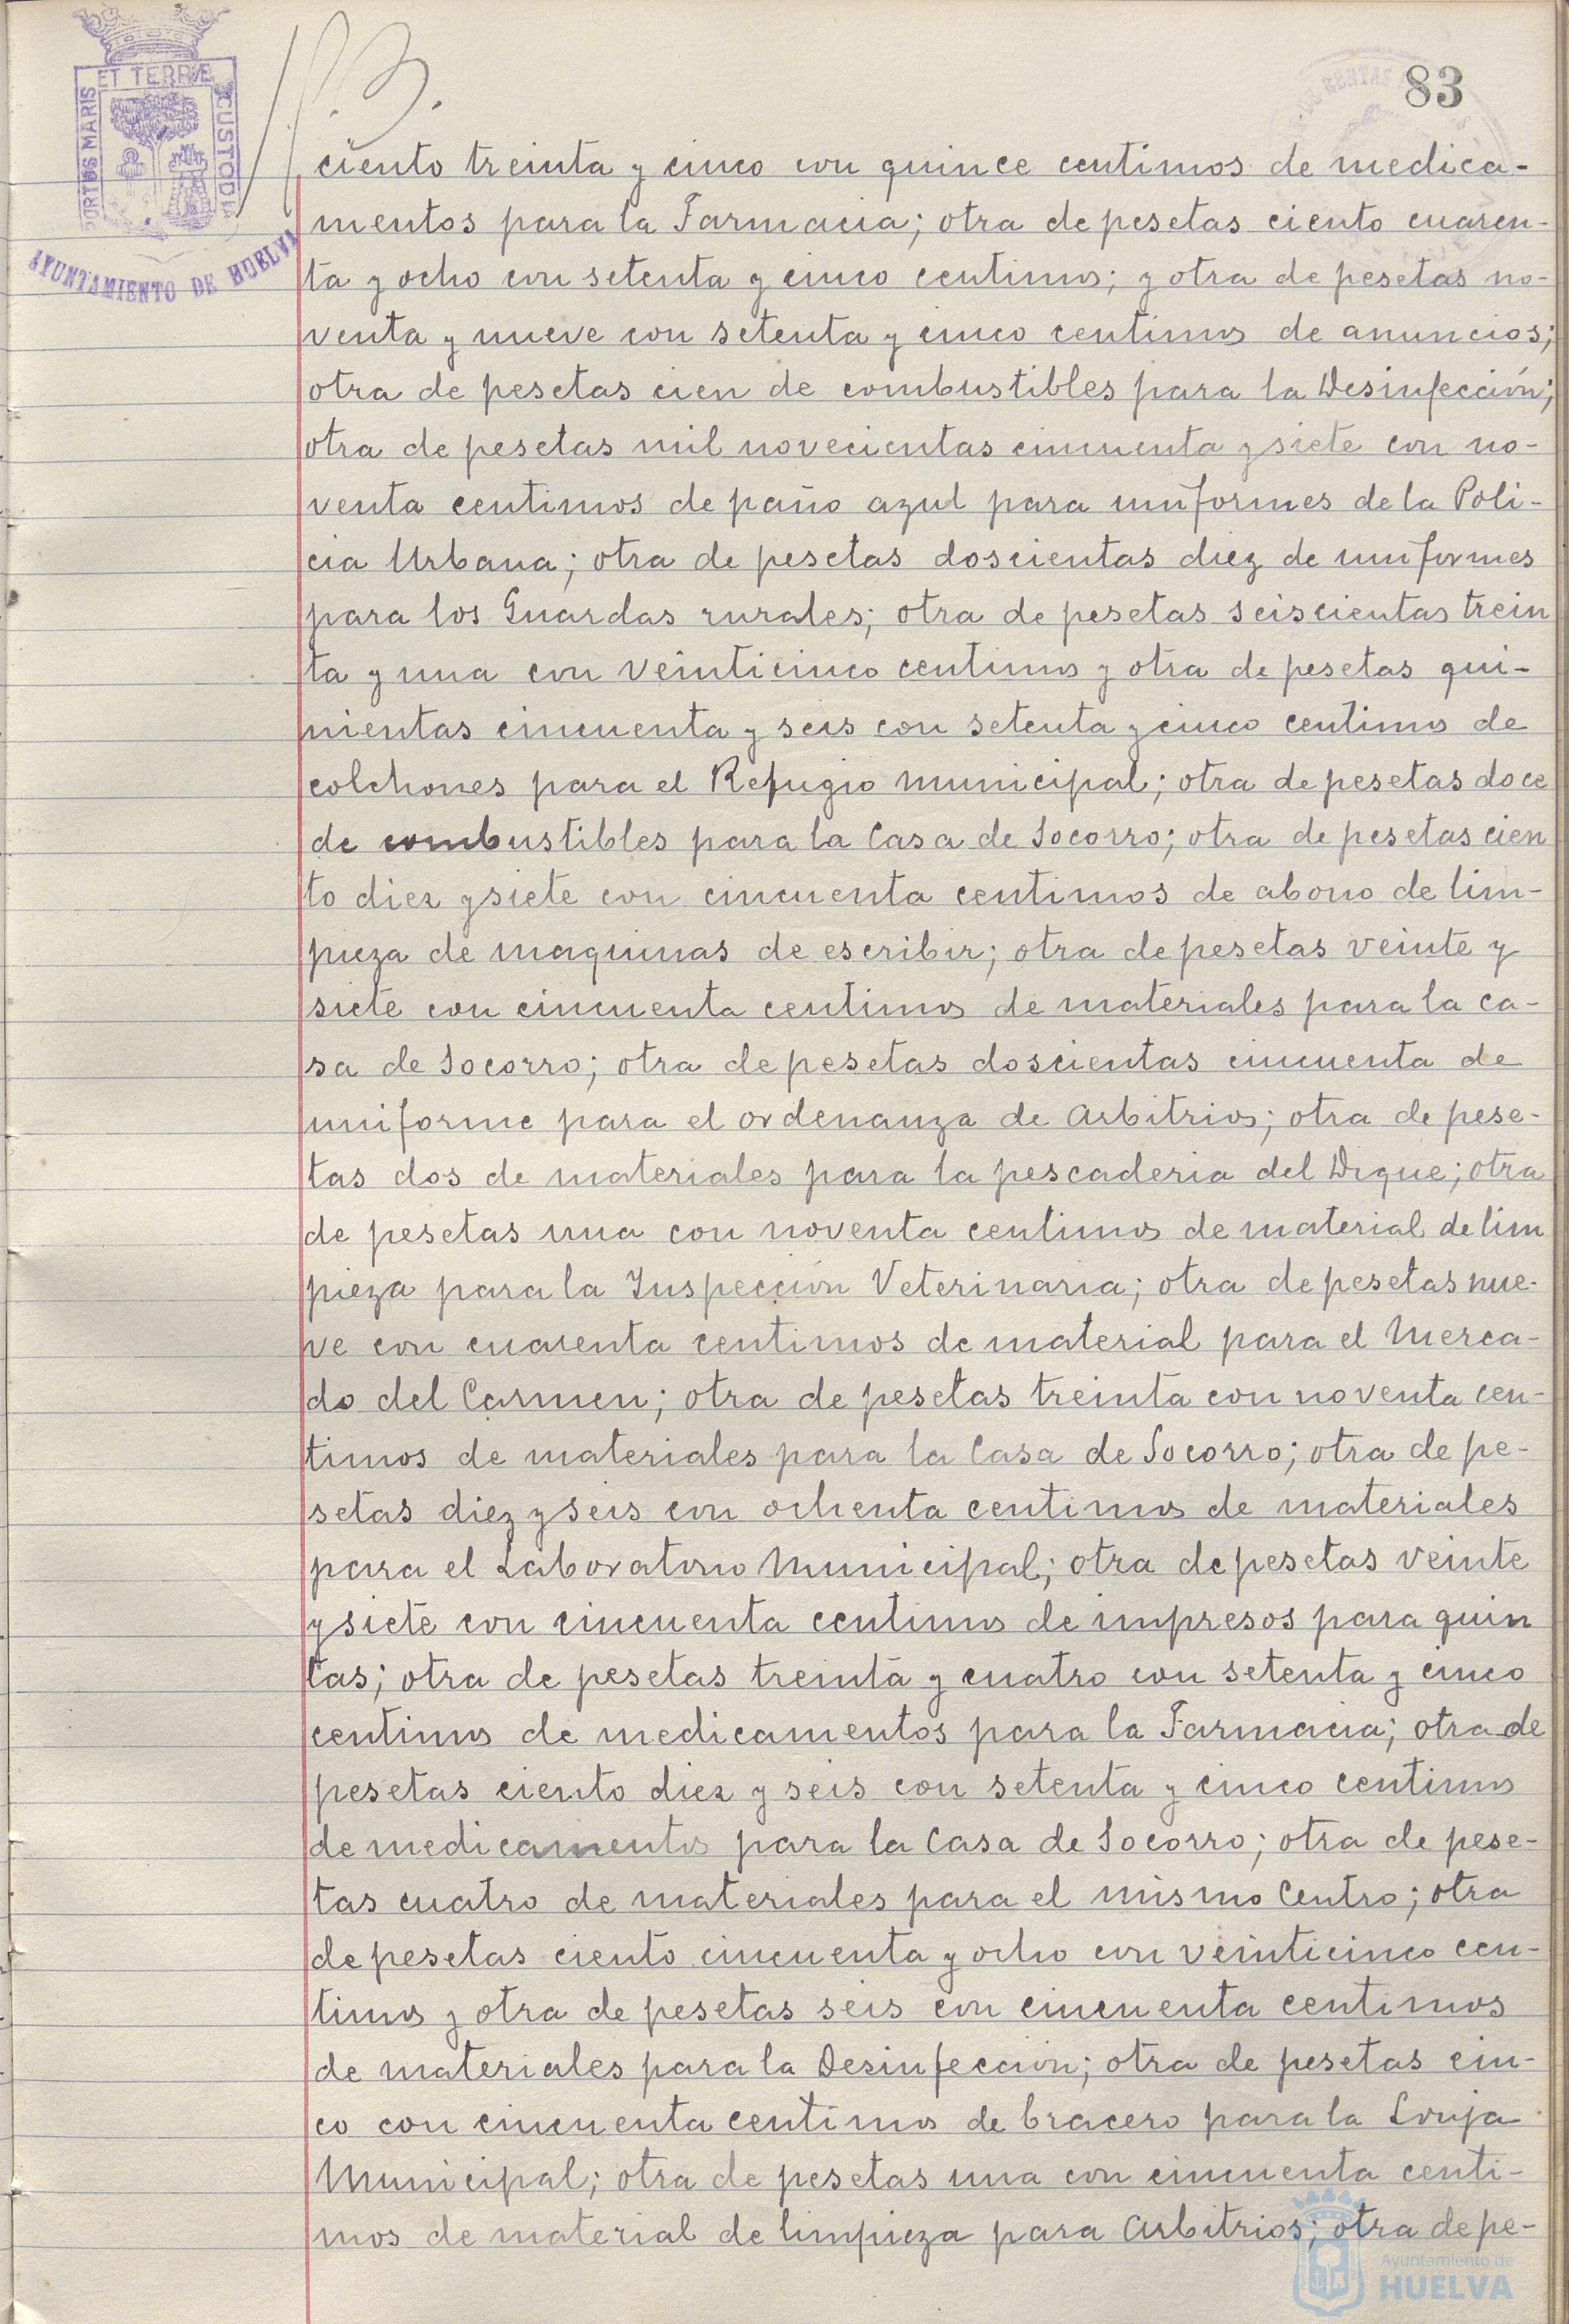 83
ET TERRÆ
PORTUS MARIS
CUSTODIA
AYUNTAMIENTO DE HUELVA
ciento treinta y cinco con quince centimos de medica-
mentos para la Farmacia; otra de pesetas ciento cuaren-
ta y ocho con setenta y cinco centimos; y otra de pesetas no-
venta y nueve con setenta y cinco centimos de anuncios;
otra de pesetas cien de combustibles para la Desinfección;
otra de pesetas mil novecientas cincuenta y siete con no-
venta centimos de paño azul para uniformes de la Poli-
cia Urbana; otra de pesetas doscientas diez de uniformes
para los Guardas rurales; otra de pesetas seiscientas trein
ta y una con veinticinco centimos y otra de pesetas qui-
nientas cincuenta y seis con setenta y cinco centimos de
colchones para el Refugio Municipal; otra de pesetas doce
de combustibles para la Casa de Socorro; otra de pesetas cien
to diez y siete con cincuenta centimos de abono de lim-
pieza de maquinas de escribir; otra de pesetas veinte y
siete con cincuenta centimos de materiales para la ca-
sa de Socorro; otra de pesetas doscientas cincuenta de
uniforme para el ordenanza de Arbitrios; otra de pese-
tas dos de materiales para la pescaderia del Dique; otra
de pesetas una con noventa centimos de material de lim
pieza para la Inspección Veterinaria; otra de pesetas nue-
ve con cuarenta centimos de material para el Merca-
do del Carmen; otra de pesetas treinta con noventa cen-
timos de materiales para la Casa de Socorro; otra de pe-
setas diez y seis con ochenta centimos de materiales
para el Laboratorio Municipal; otra de pesetas veinte
y siete con cincuenta centimos de impresos para quin
tas; otra de pesetas treinta y cuatro con setenta y cinco
centimos de medicamentos para la Farmacia; otra de
pesetas ciento diez y seis con setenta y cinco centimos
de medicamentos para la Casa de Socorro; otra de pese-
tas cuatro de materiales para el mismo Centro; otra
de pesetas ciento cincuenta y ocho con veinticinco cen-
timos y otra de pesetas seis con cincuenta centimos
de materiales para la Desinfeccion; otra de pesetas cin-
co con cincuenta centimos de bracero para la Lonja
Municipal; otra de pesetas una con cincuenta centi-
mos de material de limpieza para Arbitrios; otra de pe-
Ayuntamiento de
HUELVA